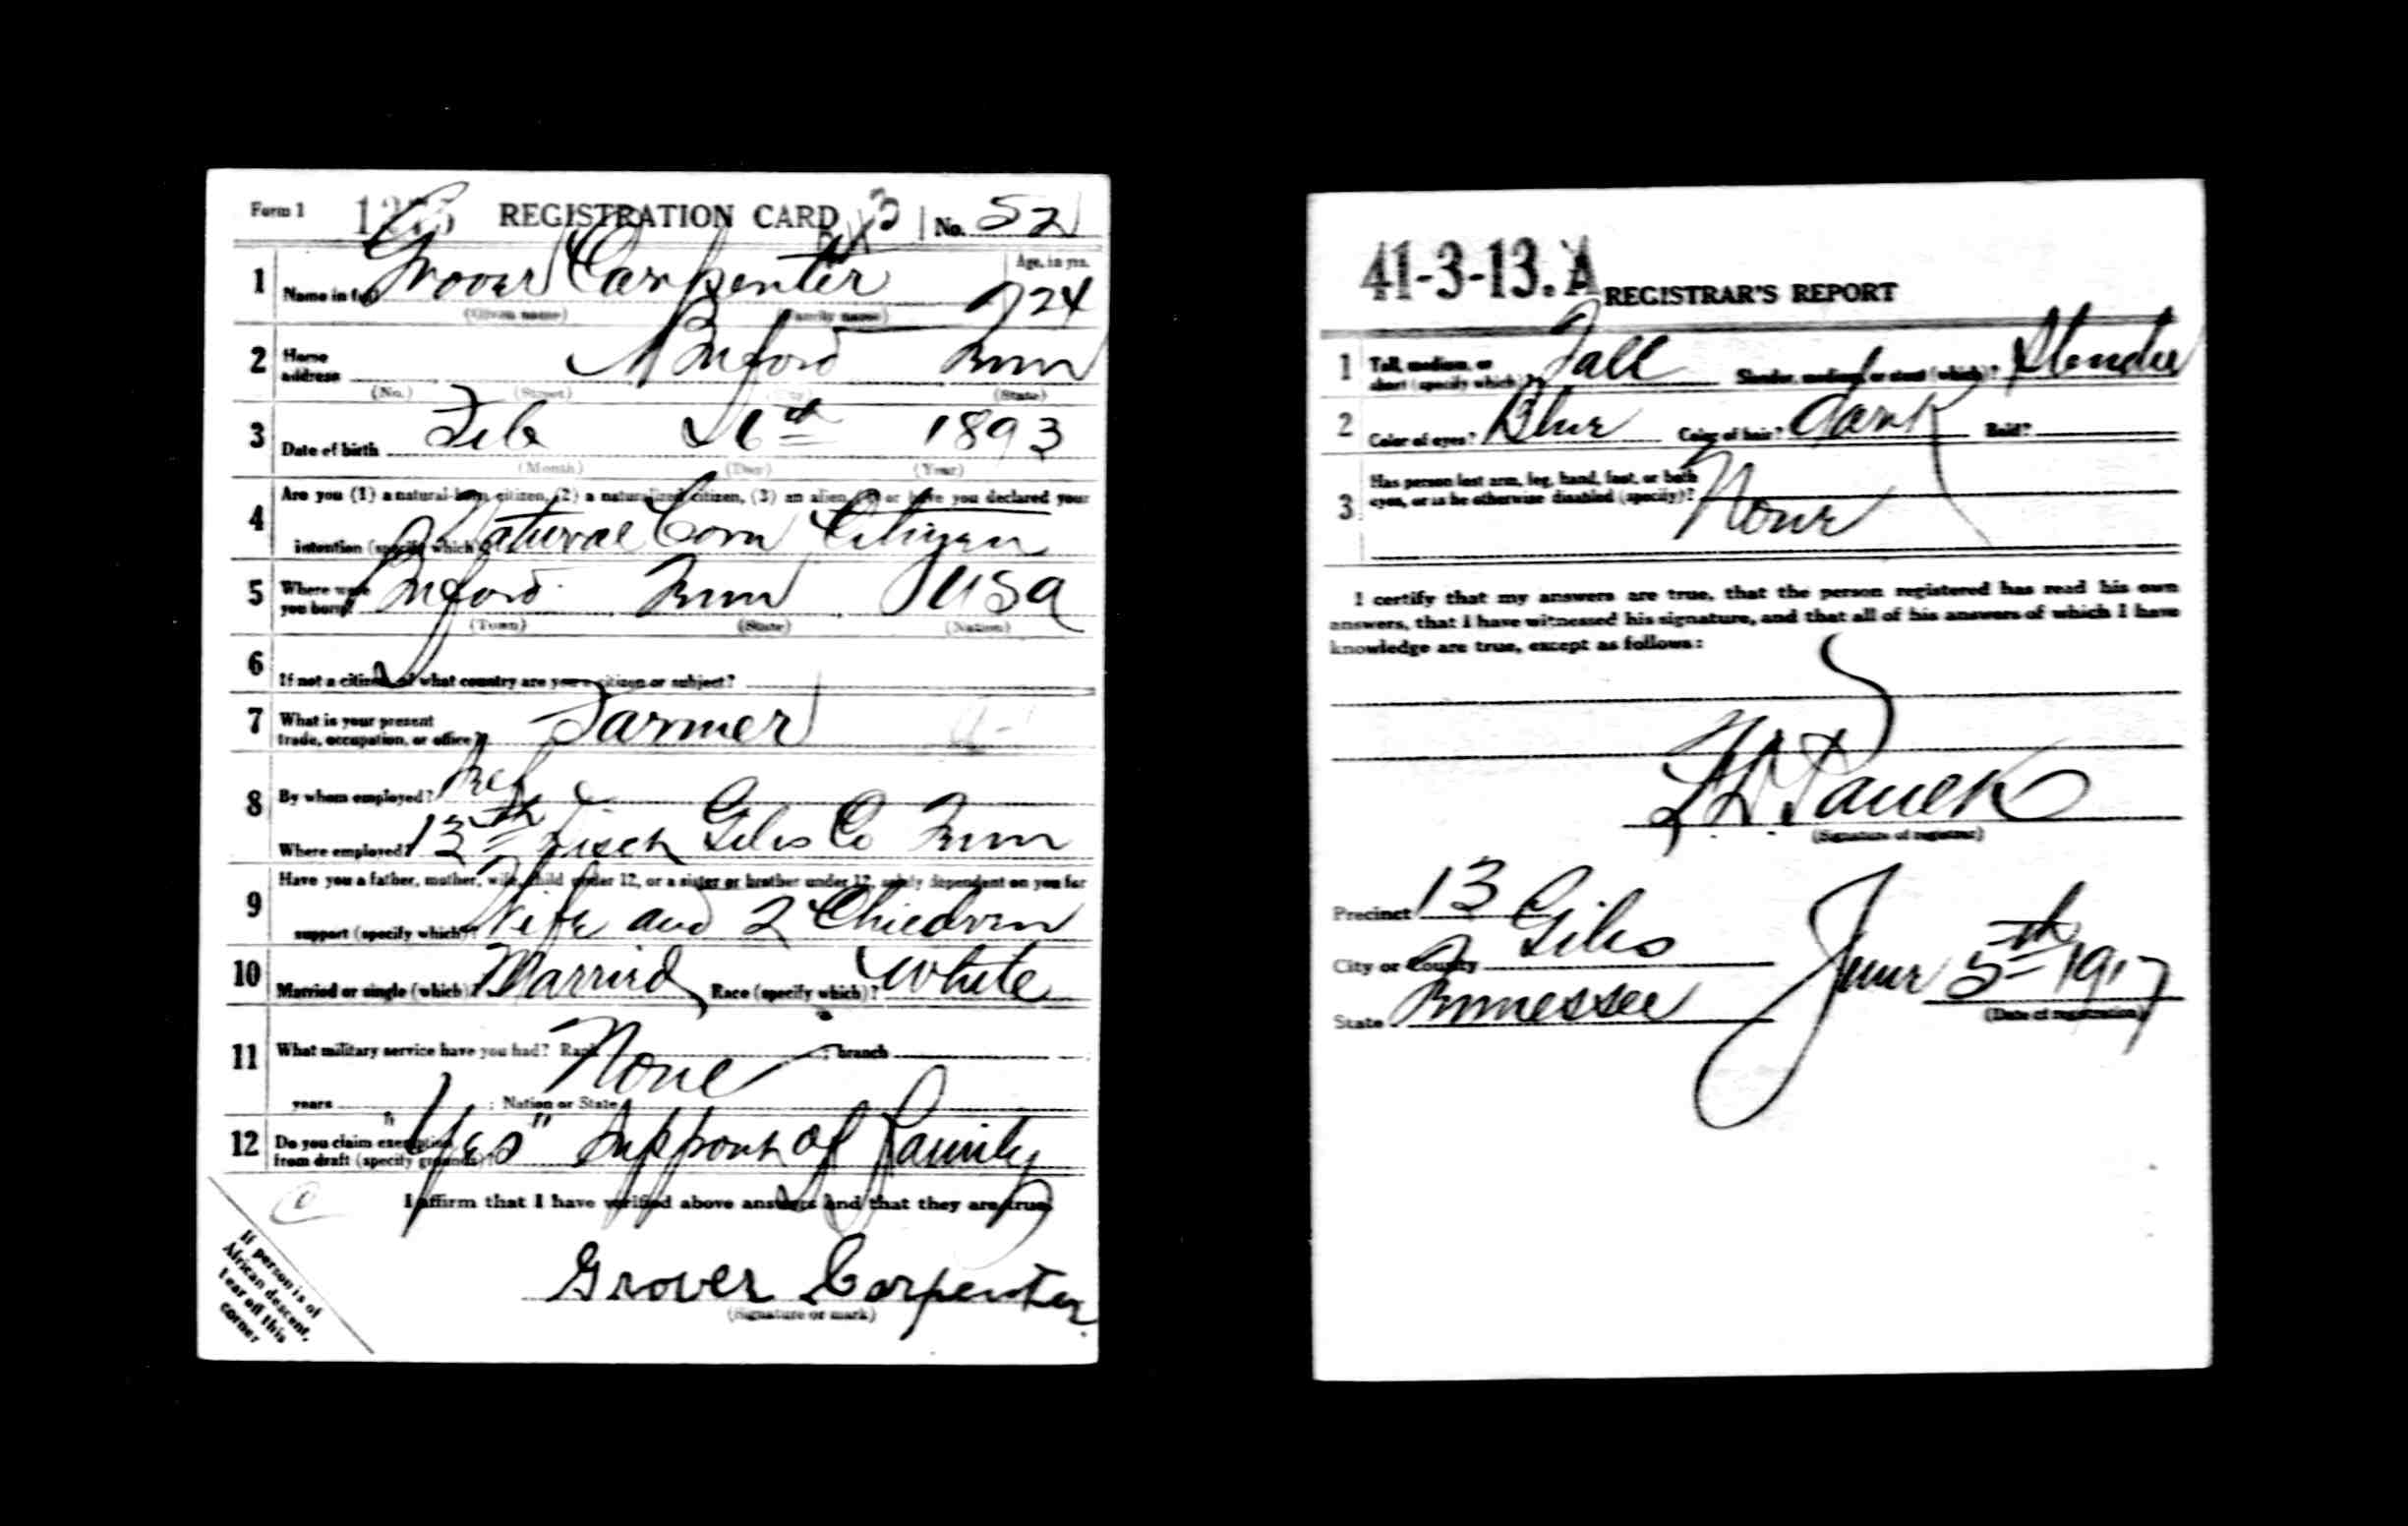 Form 1 REGISTRATION CARD No. 52
1 Name in full Grover Carpenter Age, in yrs. 24
(Given name) (Family name)
2 Home address Tenn
(No.) (Street) (City) (State)
3 Date of birth Feb 26th 1893
(Month) (Day) (Year)
4 Are you (1) a natural-born citizen, (2) a naturalized citizen, (3) an alien, (4) or have you declared your
intention (specify which)? Natural Born Citizen
5 Where were you born? Tenn USA
(Town) (State) (Nation)
6 If not a citizen, of what country are you a citizen or subject?
7 What is your present trade, occupation, or office? Farmer
8 By whom employed?
Where employed? 13th Giles Co Tenn
9 Have you a father, mother, wife, child under 12, or a sister or brother under 12, solely dependent on you for
support (specify which)? Wife and 2 Children
10 Married or single (which)? Married Race (specify which)? White
11 What military service have you had? Rank None ; branch
years ; Nation or State
12 Do you claim exemption from draft (specify grounds)? "Yes" Support of Family
I affirm that I have verified above answers and that they are true.
Grover Carpenter
(Signature or mark)
If person is of
African descent,
tear off this
corner
41-3-13. A REGISTRAR'S REPORT
1 Tall, medium, or short (specify which)? Tall Slender, medium, or stout (which)? Slender
2 Color of eyes? Blue Color of hair? dark Bald?
3 Has person lost arm, leg, hand, foot, or both
eyes, or is he otherwise disabled (specify)? None
I certify that my answers are true, that the person registered has read his own
answers, that I have witnessed his signature, and that all of his answers of which I have
knowledge are true, except as follows:
(Signature of registrar)
Precinct 13
City or County Giles
State Tennessee
June 5th 1917
(Date of registration)